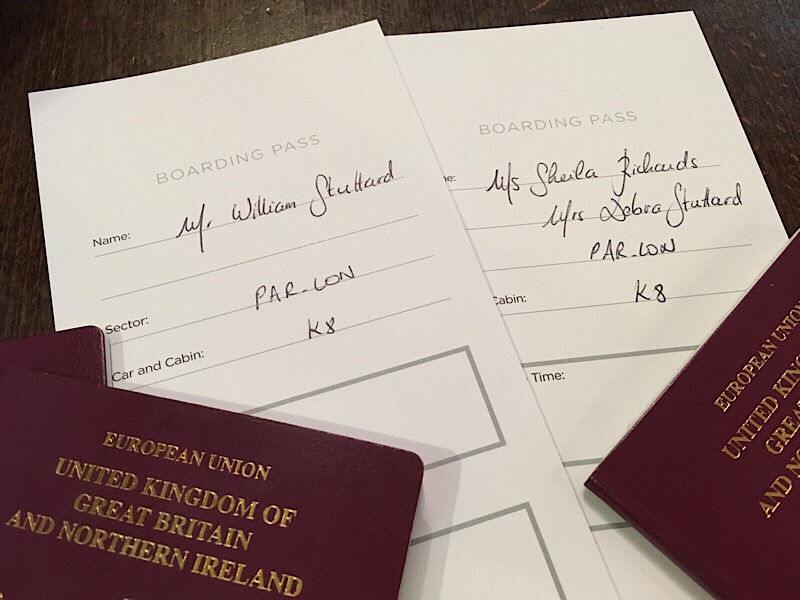 BOARDING PASS
Name: Mr. William Stuttard
Sector: PAR-LON
Car and Cabin: K8
BOARDING PASS
me: M/s Sheila Richards
M/rs Debra Stuttard
PAR-LON
Cabin: K8
Time:
EUROPEAN UNION
UNITED KINGDOM OF
GREAT BRITAIN
AND NORTHERN IRELAND
EUROPEAN UNION
UNITED KING
GREA
AND NO